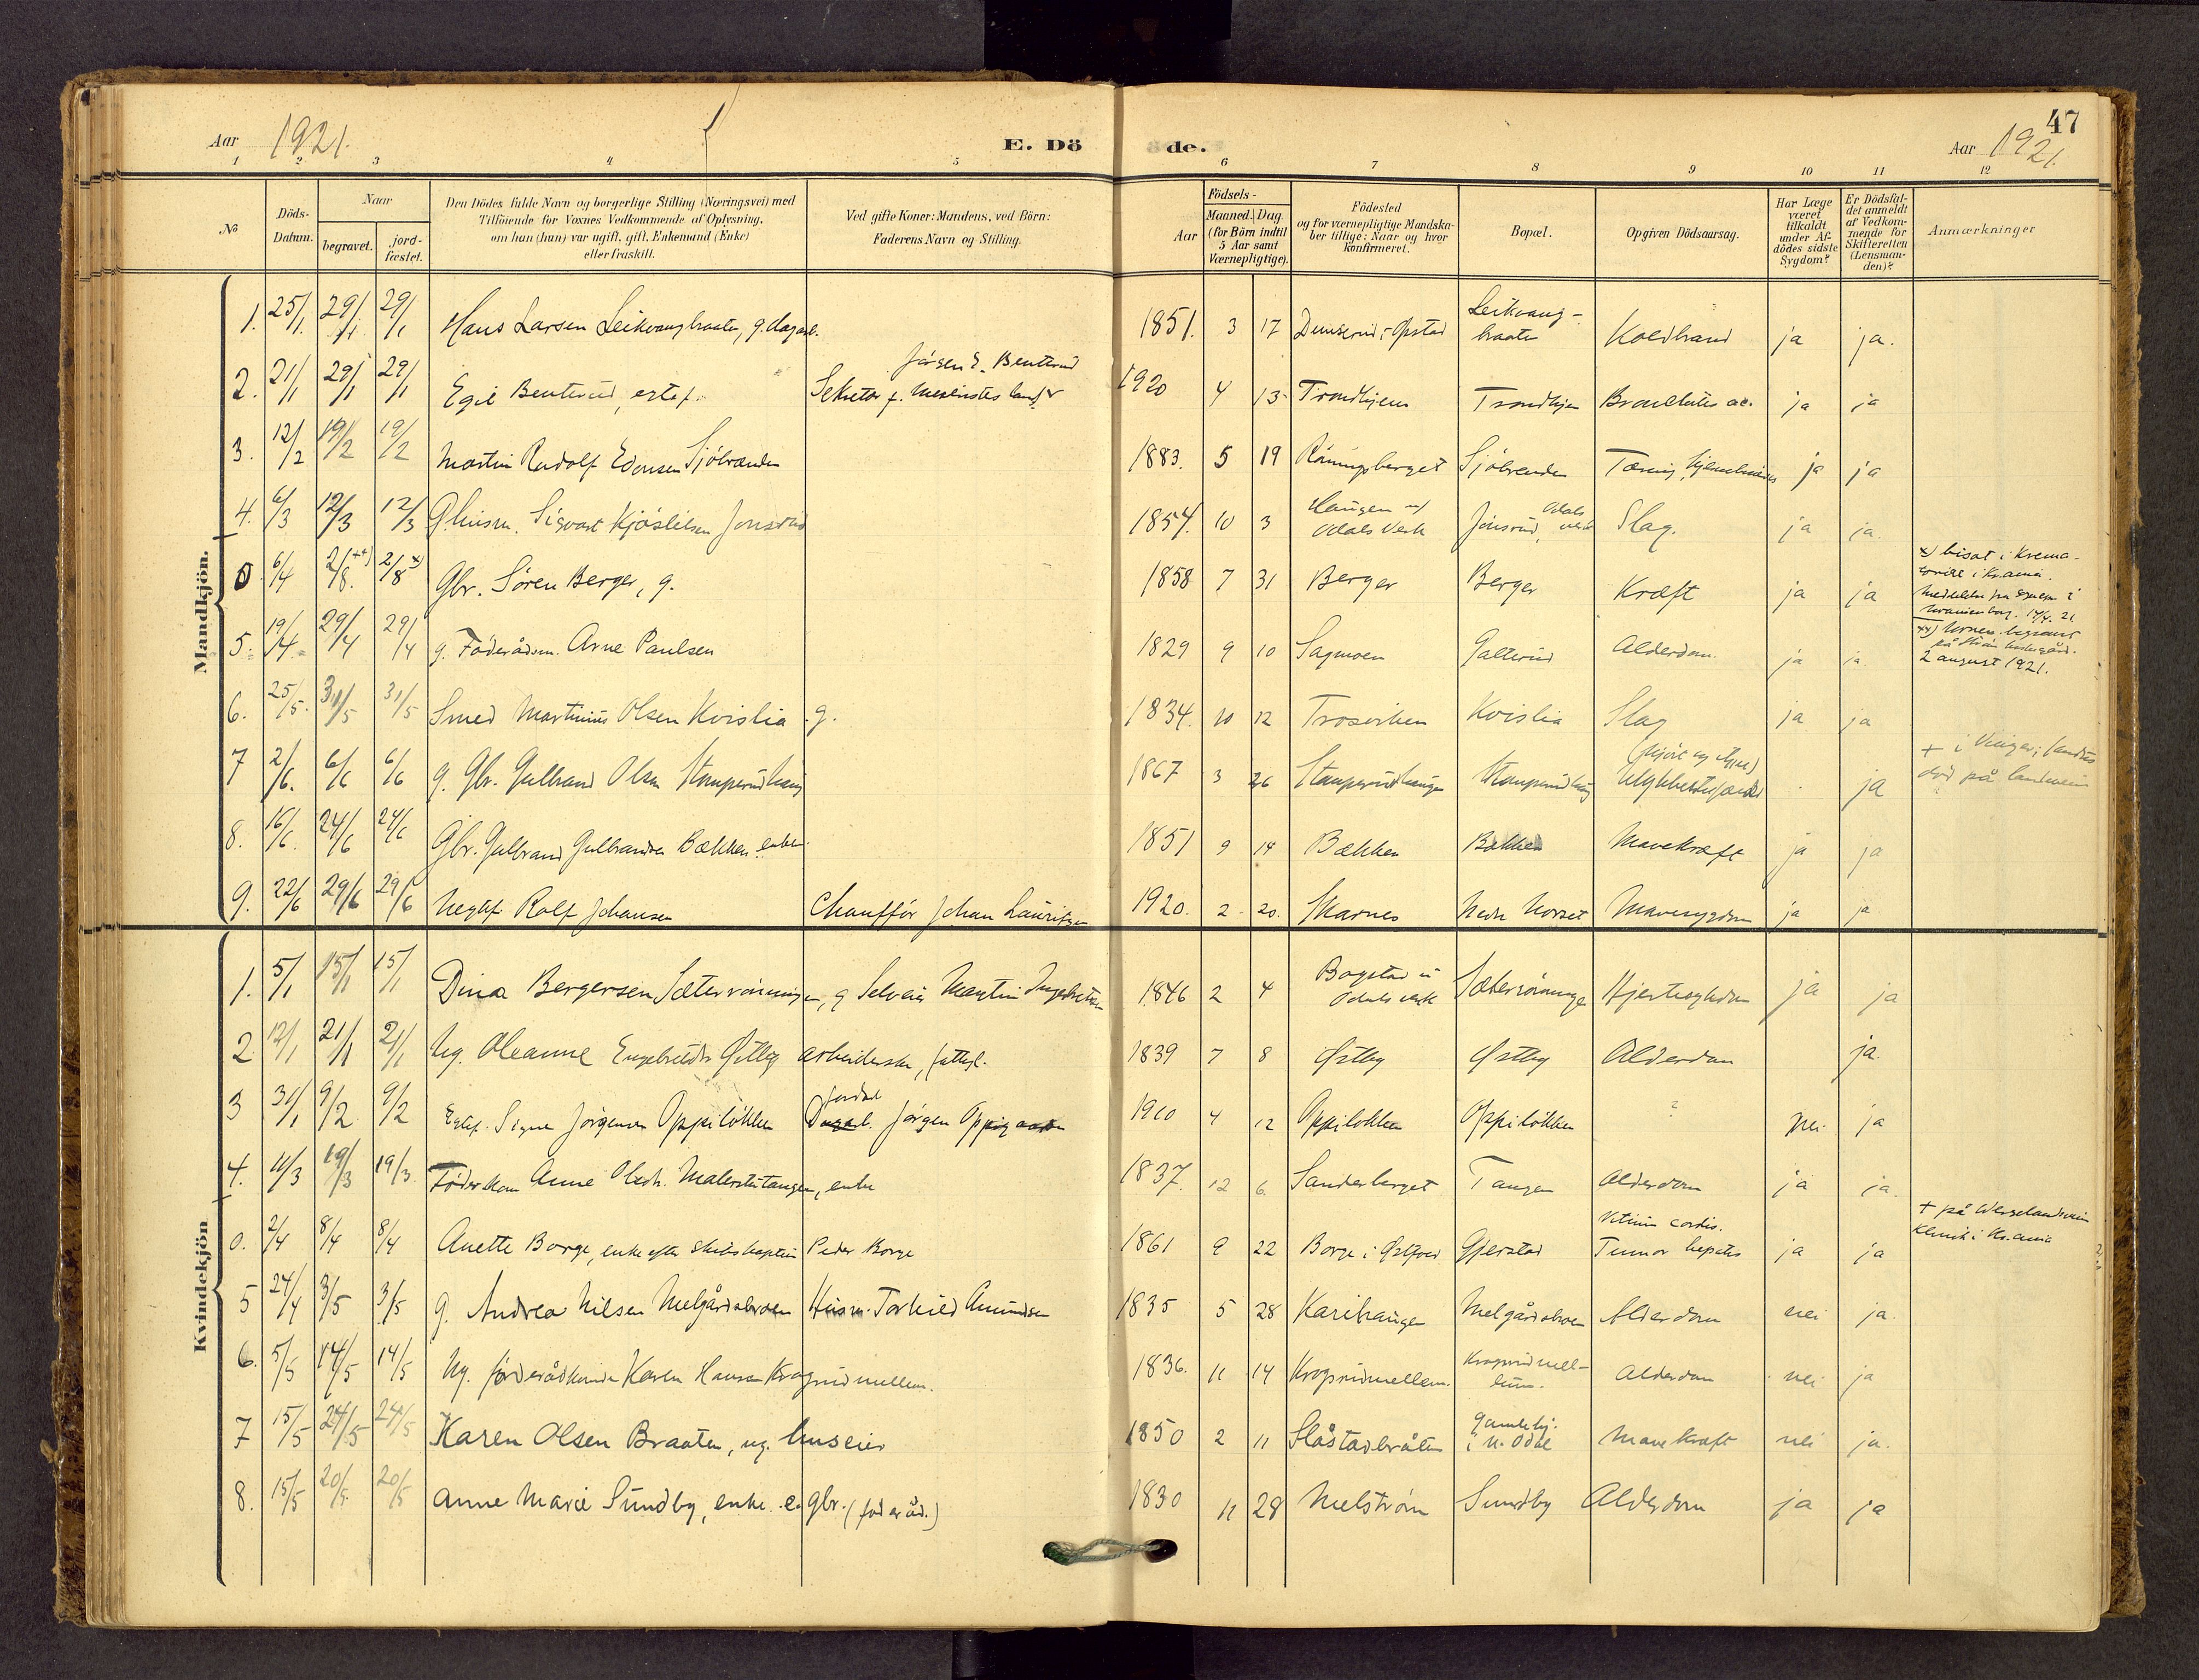 47
Aar 1921.
E. Döde.
Aar 1921.
1 2 3 4 5 6 7 8 9 10 11 12
№
Döds-Datum.
Naar
begravet.
jord-fæstet.
Den Dödes fulde Navn og borgerlige Stilling (Næringsvei) med
Tilföiende for Voxnes Vedkommende af Oplysning,
om han (hun) var ugift, gift, Enkemand (Enke)
eller fraskilt.
Ved gifte Koner: Mandens, ved Börn:
Faderens Navn og Stilling.
Födsels-
Aar
Maaned. Dag.
(for Börn indtil
5 Aar samt
Værnepligtige).
Födested
og for værnepligtige Mandska-
ber tillige: Naar og hvor
konfirmeret.
Bopæl.
Opgiven Dödsaarsag.
Har Læge
været
tilkaldt
under Af-
dödes sidste
Sygdom?
Er Dödsfal-
det anmeldt
af Vedkom-
mende for
Skifteretten
(Lensman-
den)?
Anmærkninger
Mandkjön.
1. 25/1 29/1 29/1 Hans Larsen Leikvangbraaten, g. dagarb. 1851. 3 17 Opstad Leikvang-braaten Koldbrand ja ja.
2. 21/1 29/1 29/1 Egil Benterud, ektef. Jørgen E. Benterud Sekretær f. 1920 4 13 Trondhjem Trondhjem ja ja
3. 12/2 19/2 19/2 Martin Rudolf Edonsen Sjöbrænden 1883. 5 19 Röningsberget Sjöbrenden Tæring, ja ja
4. 6/3 12/3 12/3 G. husm. Sigvart Kjöstelsen Jonsrud 1854. 10 3 Haugen Odals Verk Jonsrud, Odals verk Slag. ja ja.
0. 6/4 2/8 ++) 2/8 x) Gbr. Sören Berger, g. 1858 7 31 Berger Berger Kræft ja ja
x) bisat i Krema-
i Kr.ania.
17/4. 21
xx) begravet
på
2 august 1921.
5. 19/4 29/4 29/4 g. Föderådsm. Arne Paulsen 1829 9 10 Sagmoen Galterud Alderdom. ja ja
6. 25/5. 31/5 31/5 Smed Martinius Olsen Kvislia g. 1834. 10 12 Trosviken Kvislia Slag ja ja
7 2/6. 6/6 6/6 g. Gbr. Gulbrand Olsen Stomperudhaug 1867 3 26 Stomperudhaugen Stomperudhaug ja
+ i Vinger; fandtes
död på landeveien
8. 16/6. 24/6 24/6 Gbr. Gulbrand Gulbrandsen Bækken enkem. 1851 9 14 Bækken Bækken Mavekræft ja ja
9. 22/6 29/6 29/6 Uegtef. Rolf Johansen Chauffør Johan Lauritzen 1920. 2 20. Skarnes Nedre Norset Mavesygdom ja ja
Kvindekjön
1. 5/1 15/1 15/1 Dina Bergersen Sæterröningen, g Selveier Martin Ingebretsen 1846 2 4 Bogstad i Odals verk Sæterröningen Hjertesykdom ja ja
2 12/1 21/1 21/1 Ug. Oleanne Engebretsdr Østby arbeiderske, fattigl. 1839 7 8 Østby Østby Alderdom ja.
3 31/1 9/2 9/2 Egtef. Signe Jørgensen Oppilökken Jørgen 1910 4 12 Oppilökken Oppilökken ? nei ja
4. 11/3 19/3 19/3. Föderkone Anne Olsdr. Malerstutangen, enke 1837. 12 6. Sanderberget Tangen Alderdom ja ja.
0. 2/4 8/4 8/4 Anette Borge, enke efter skibskaptein Peder Borge 1861 9 22 Borge i Østfold Gjerstad Vitium cordis. Tumor hepatis ja ja
+ på Wergelandsveien
klinik i Kr.ania
5 24/4 3/5 3/5 g. Andrea Nilsen Melgårdsbroen Husm. Torkild Amundsen 1835 5 28 Karihaugen Melgårdsbroen Alderdom nei ja
6. 5/5 14/5 14/5 Ug. föderådkvinde Karen Hansen Krogrudmellem. 1836. 11 14 Krogrudmellem. Krogrudmell-em. Alderdom nei ja
7 15/5 24/5 24/5 Karen Olsen Braaten, ug. huseier 1850 2 11 Slåstadbråten Gamleby. i N. Odal Mavekræft nei ja.
8. 15/5 20/5. 20/5 Anne Marie Sundby, enke e. gbr. (föderåd.) 1830 11 28 Melström Sundby Alderdom ja ja